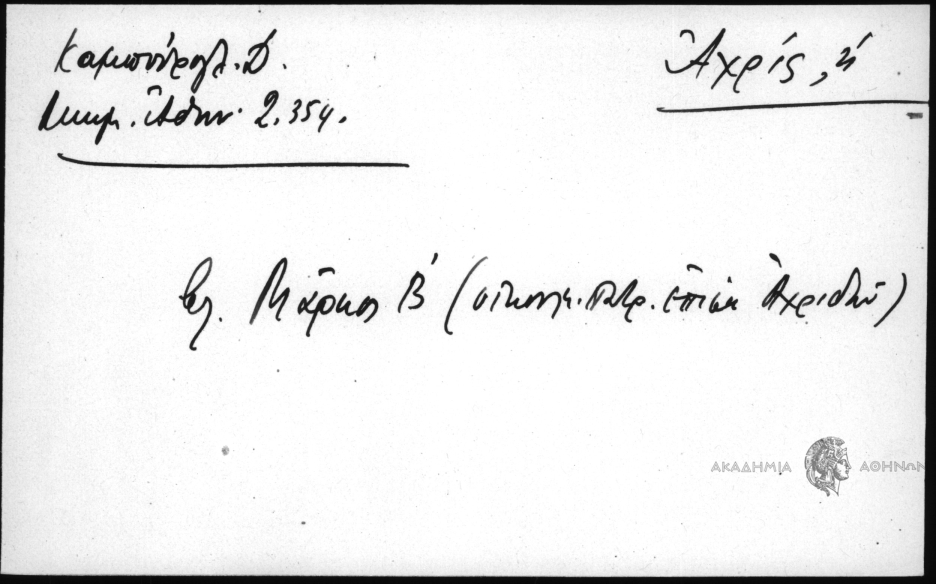 Καμπούρογλ. Δ.
Μνημ. Ἀθην. 2.354.
Ἀχρίς, ἡ
βλ. Μᾶρκος Β' (οἰκουμ. πατρ. ἐπίσκ. Ἀχριδῶν)
ΑΚΑΔΗΜΙΑ ΑΘΗΝΩΝ